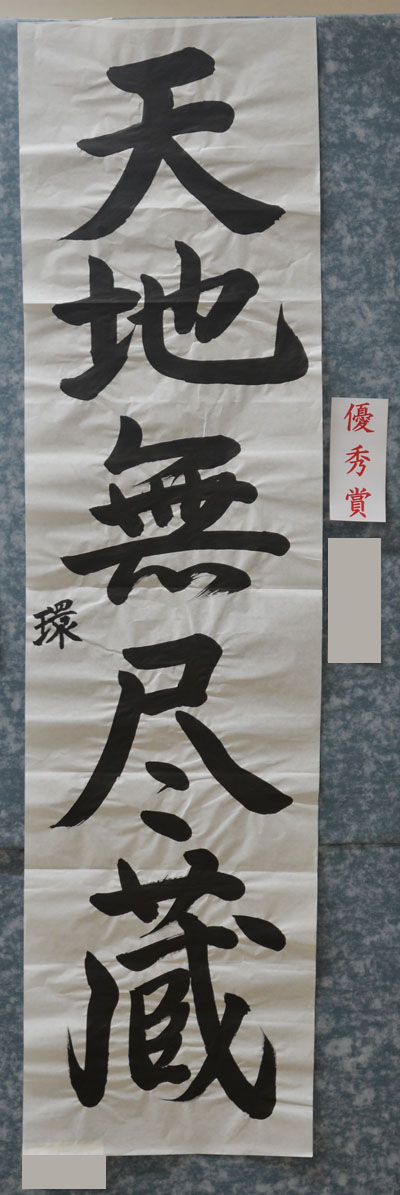 優秀賞
天地無尽蔵
環